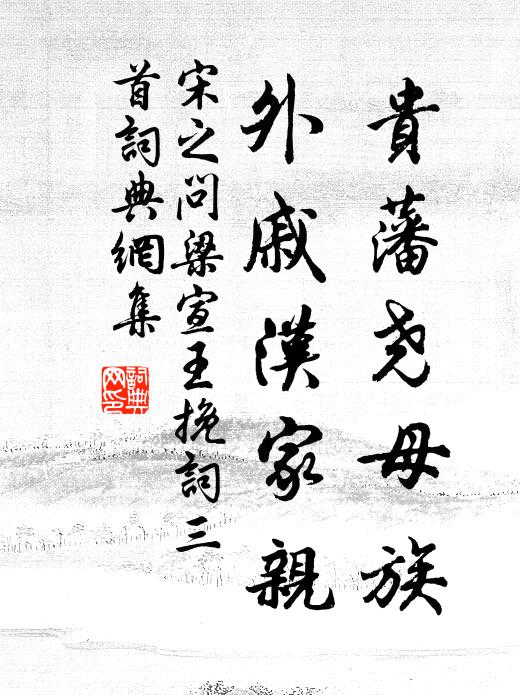 貴藩堯母族
外戚漢家親
宋之問梁宣王挽詞三
首詞典網集
詞典
网印